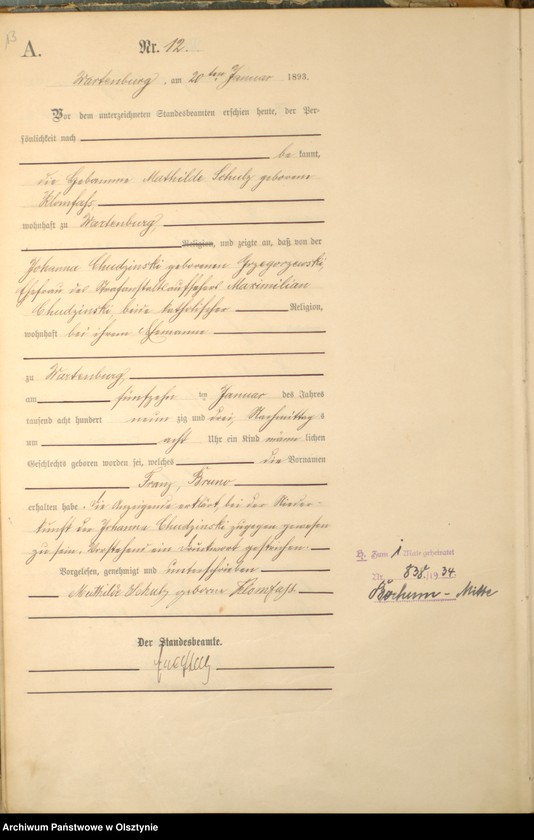 13
A.
Nr. 12.
Wartenburg, am 20ten Januar 1893.
Vor dem unterzeichneten Standesbeamten erschien heute, der Per-
sönlichkeit nach
be kannt,
die Hebamme Mathilde Schulz geborene
Klomfass,
wohnhaft zu Wartenburg,
Religion, und zeigte an, daß von der
Johanna Chudzinski geborenen Grzegorzewski,
Ehefrau des Strafanstaltsaufsehers Maximilian
Chudzinski, beide katholischer Religion,
wohnhaft bei ihrem Ehemanne
zu Wartenburg,
am fünfzehn ten Januar des Jahres
tausend acht hundert neun zig und drei, Nachmittags
um acht Uhr ein Kind männ lichen
Geschlechts geboren worden sei, welches die Vornamen
Franz, Bruno
erhalten habe. Die Anzeigende erklärt, bei der Nieder-
kunft der Johanna Chudzinski zugegen gewesen
zu sein. Vorstehend ein Druckwort gestrichen.
Vorgelesen, genehmigt und unterschrieben
Mathilde Schulz geborne Klomfass.
Der Standesbeamte.
H. Zum 1 Male geheiratet
Nr. 838/1934
Bochum-Mitte
Archiwum Państwowe w Olsztynie